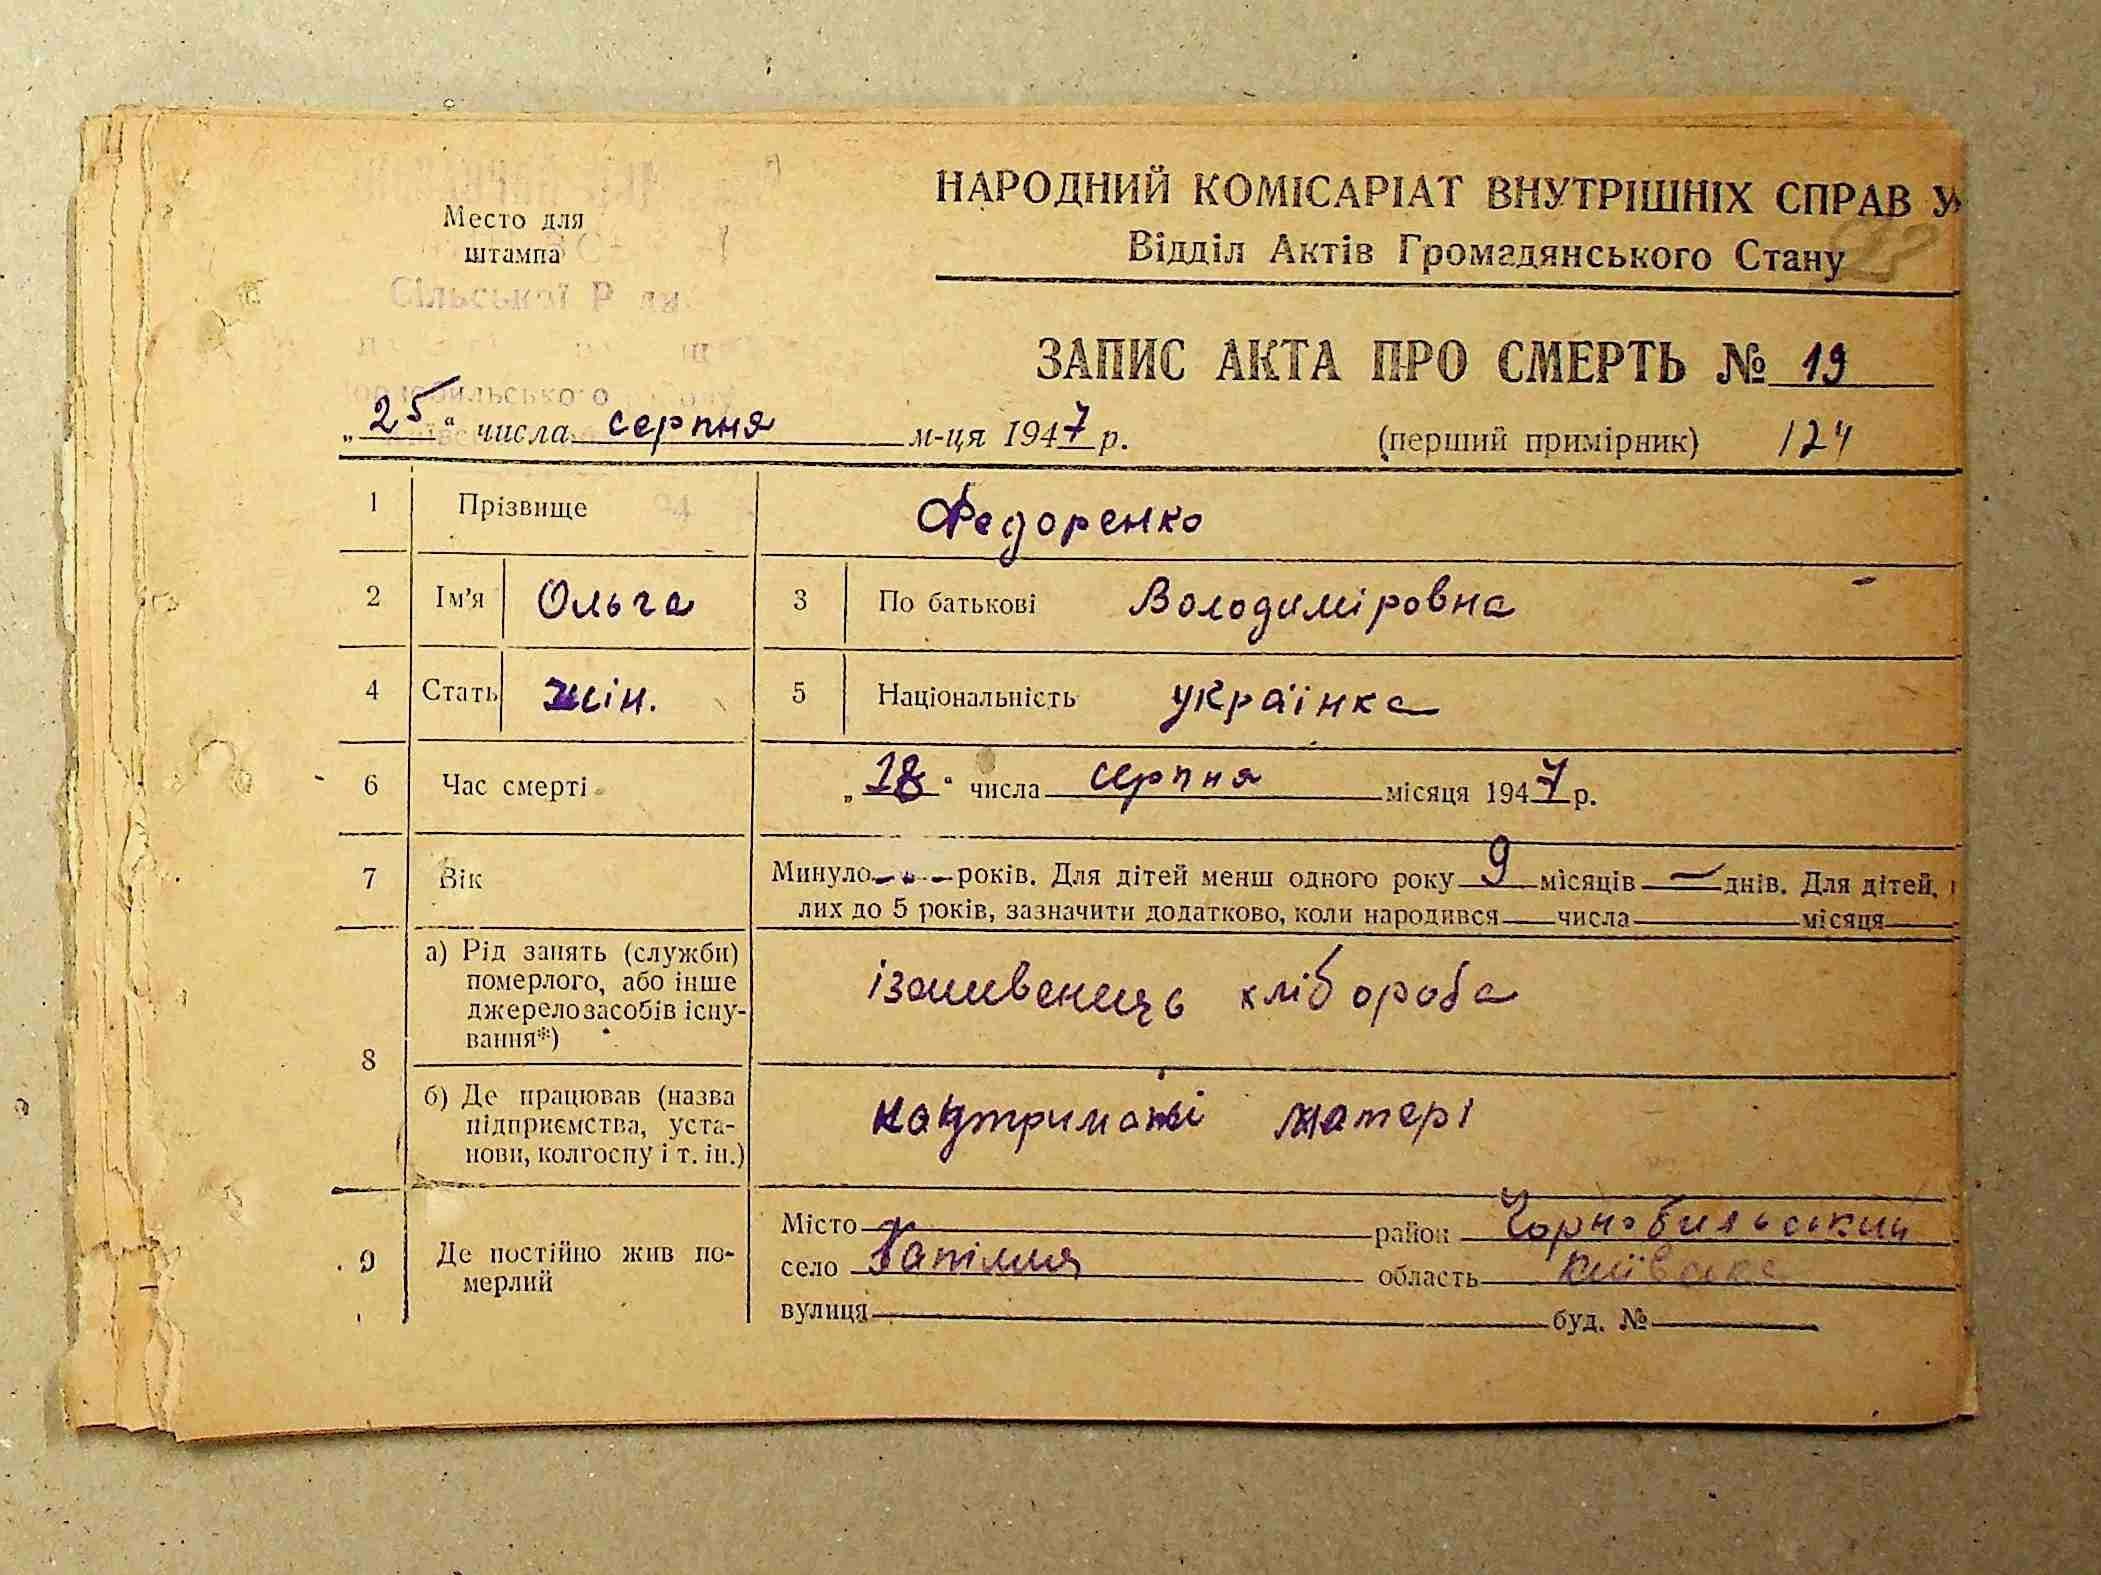 НАРОДНИЙ КОМІСАРІАТ ВНУТРІШНІХ СПРАВ У
Відділ Актів Громадянського Стану
Место для
штампа
Сільської Р ди
ЗАПИС АКТА ПРО СМЕРТЬ № 19
„25“ числа серпня м-ця 1947 р.
(перший примірник) 124
1 Прізвище Федоренко
2 Ім'я Ольга 3 По батькові Володиміровна
4 Стать жін. 5 Національність українка
6 Час смерті „18“ числа серпня місяця 1947 р.
7 Вік Минуло — " — років. Для дітей менш одного року 9 місяців — днів. Для дітей,
лих до 5 років, зазначити додатково, коли народився числа місяця
8 а) Рід занять (служби)
померлого, або інше
джерело засобів існу-
вання*)
ізашвенець хлібороба
б) Де працював (назва
підприємства, уста-
нови, колгоспу і т. ін.)
матері
9 Де постійно жив по-
мерлий
Місто район Чорнобильський
село область Київська
вулиця буд. №